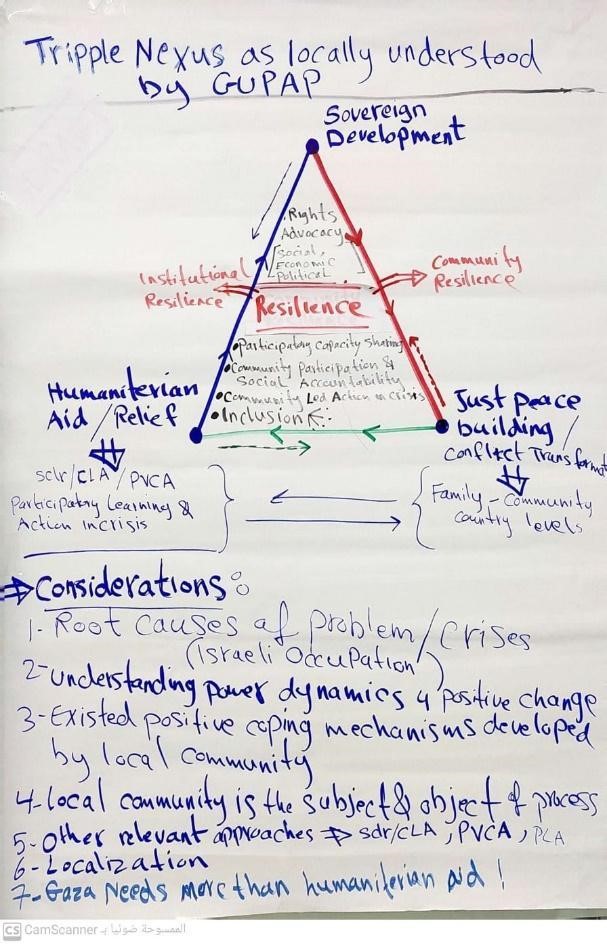 Tripple Nexus as locally understood
by GUPAP
Sovereign
Development
Rights
Advocacy
[Social,
Economic
Political
Institutional
Resilience
Community
Resilience
Resilience
•Participatory capacity sharing
•Community Participation &
Social Accountability
•Community Led Action in crisis
•Inclusion
Humaniterian
Aid / Relief
Just peace
building /
Conflict Transformat
sclr/CLA/PVCA
Participatory Learning &
Action in crisis
Family - Community
country levels
⇒ Considerations:
1- Root causes of problem/crises
(Israeli Occupation)
2- understanding power dynamics & positive change
3- Existed positive coping mechanisms developed
by local community
4- local community is the subject & object of process
5- Other relevant approaches ⇒ sclr/CLA, PVCA, PLA
6- Localization
7- Gaza Needs more than humaniterian aid !
CS CamScanner الممسوحة ضوئيا بـ